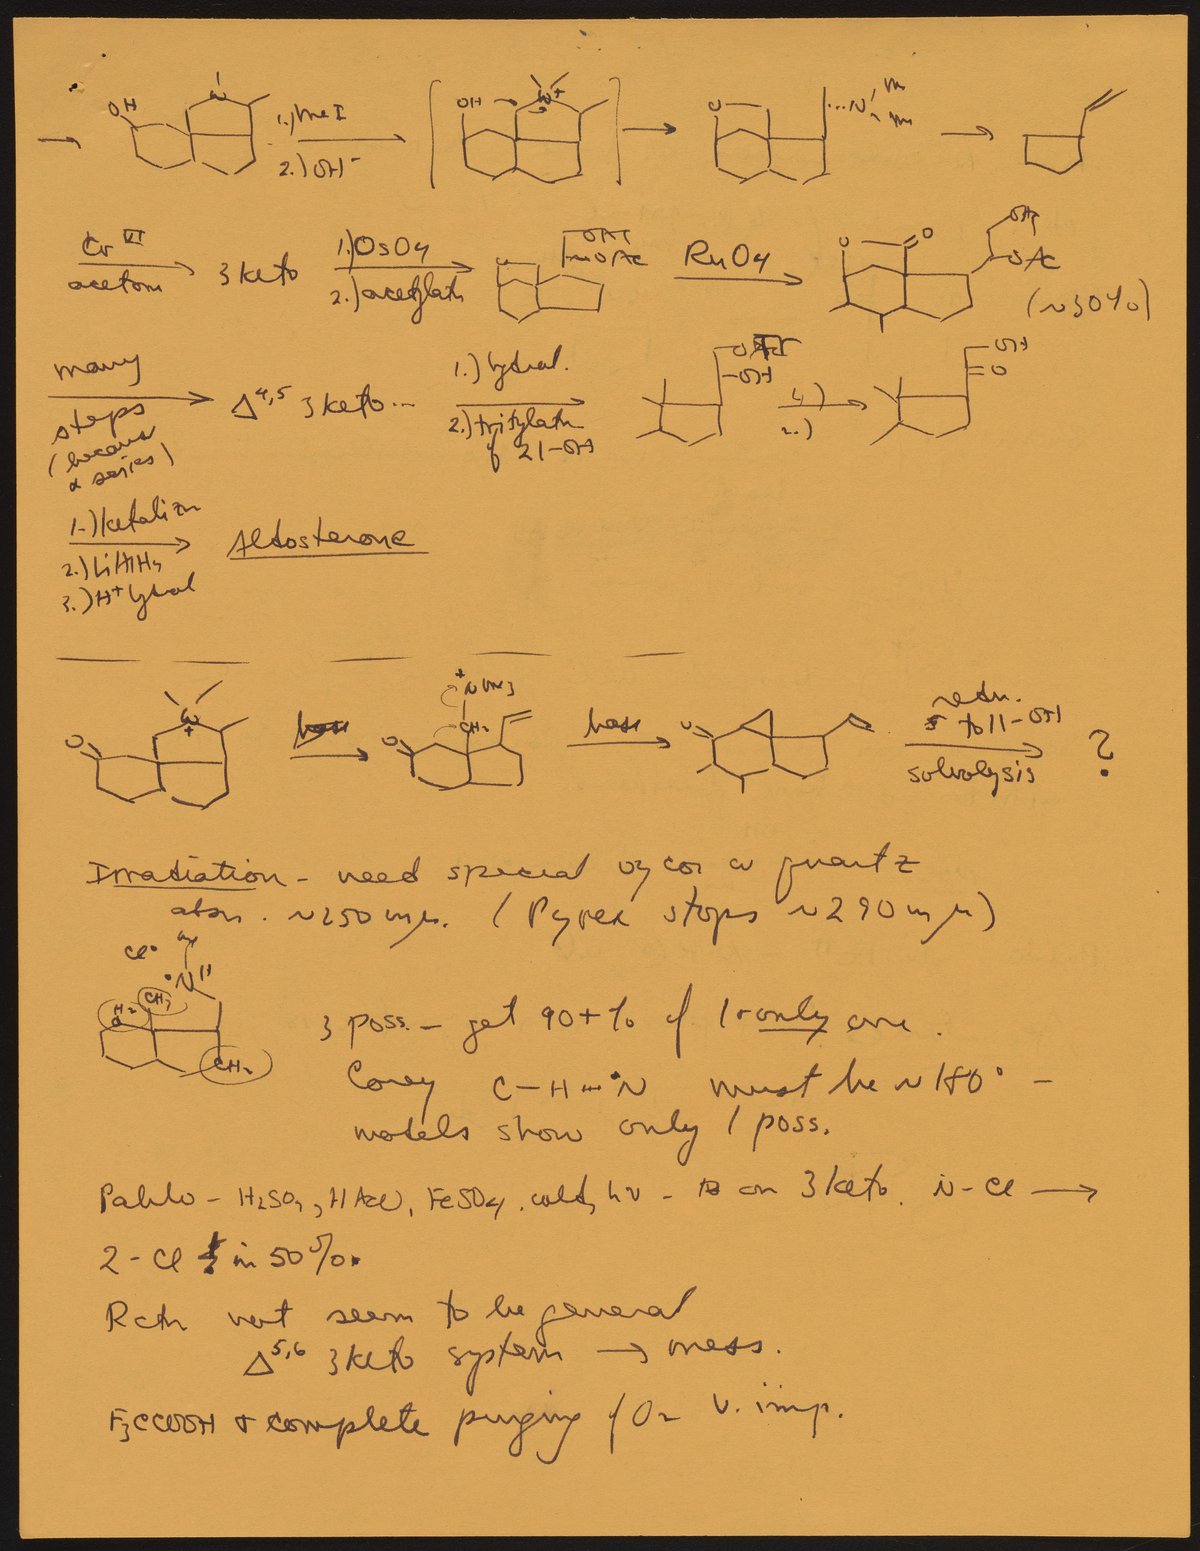 OH N 1.) MeI OH N+ O ...N Me
2.) OH⁻ Me
Cr VI 1.) OsO4 RuO4 O O OAc
acetone 3 keto 2.) acetylatn O OAc (~30%)
many 1.) hydrol. OH
steps Δ4,5 3 keto... -OH =O
(because 2.) tritylatn 1.)
α series) of 21-OH 2.)
1.) ketalizn
2.) LiAlH4 Aldosterone
3.) H+ hydrol
+NMe3 redn.
O N+ base O CH2 base O to 11-OH ?
solvolysis
Irradiation - need special vycor or quartz
absn. ~250 mμ. (Pyrex stops ~290 mμ)
Cl•
•N H
H2 CH3 3 poss. - get 90+% of 1 + only one.
CH2 Corey C-H---•N must be ~180° -
models show only 1 poss.
Pablo - H2SO4, HAc, FeSO4, cold, hν - on 3 keto. N-Cl →
2-Cl in 50%.
Rctn not seem to be general
Δ5,6 3 keto system → mess.
F3CCOOH + complete purging of O2 v. imp.